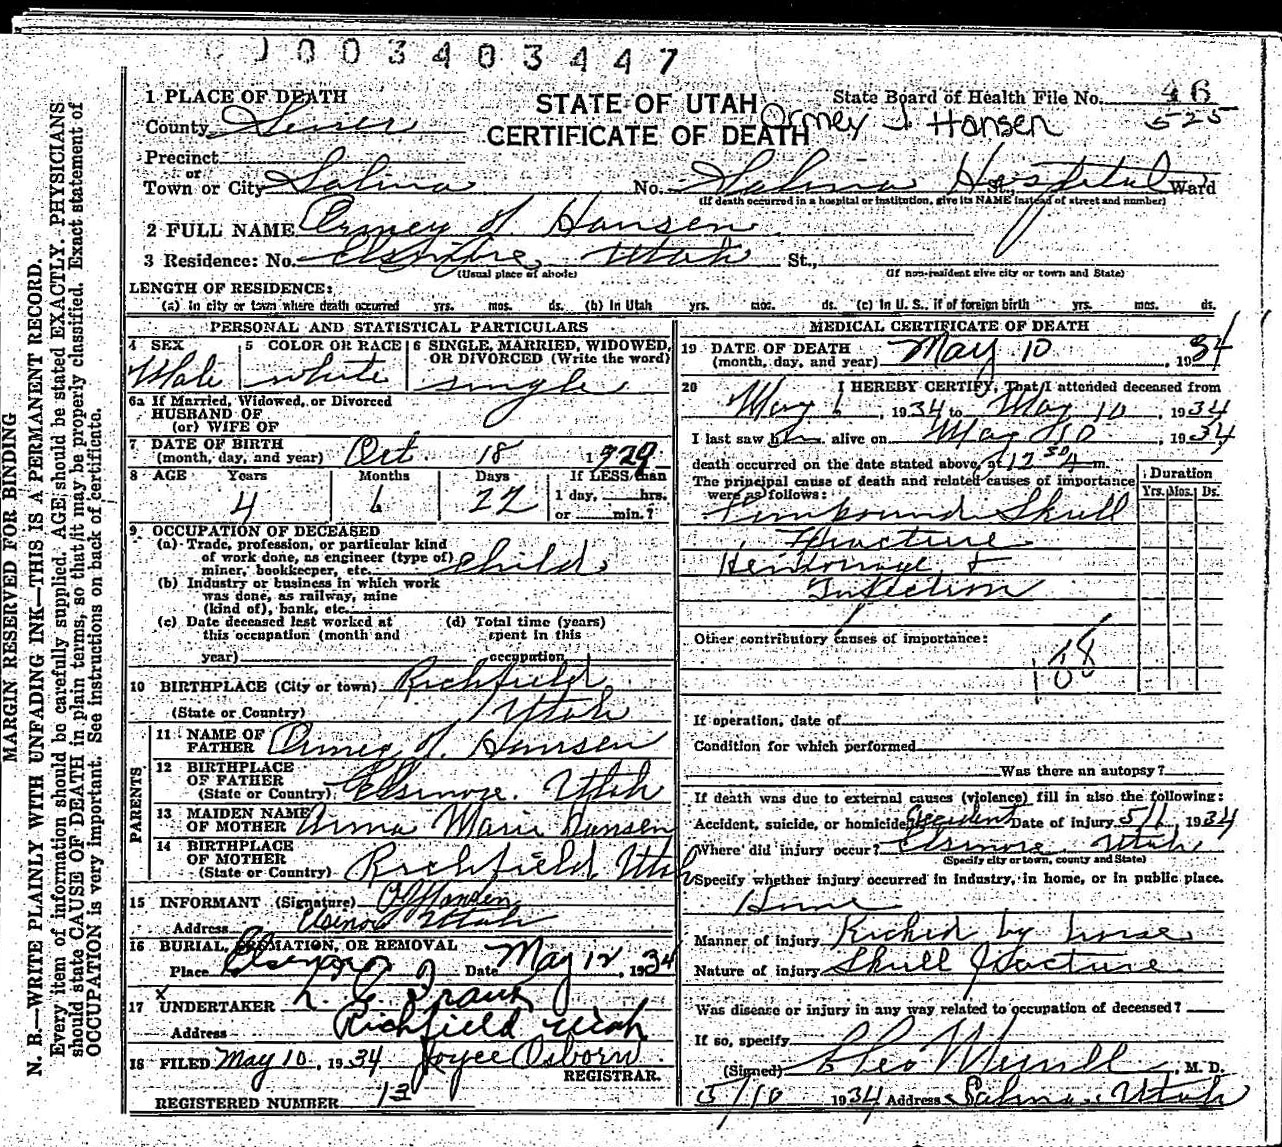 0003403447
1 PLACE OF DEATH
STATE OF UTAH
CERTIFICATE OF DEATH
State Board of Health File No. 46
525
Ormey J. Hansen
County Sevier
Precinct
or
Town or City Salina No. Salina Hospital St., Ward
(If death occurred in a hospital or institution, give its NAME instead of street and number)
2 FULL NAME Ormey J. Hansen
3 Residence: No. Elsinore, Utah St.,
(Usual place of abode) (If non-resident give city or town and State)
LENGTH OF RESIDENCE:
(a) In city or town where death occurred yrs. mos. ds. (b) In Utah yrs. mos. ds. (c) In U. S., if of foreign birth yrs. mos. ds.
PERSONAL AND STATISTICAL PARTICULARS
4 SEX 5 COLOR OR RACE 6 SINGLE, MARRIED, WIDOWED, OR DIVORCED (Write the word)
Male white single
6a If Married, Widowed, or Divorced
HUSBAND OF
(or) WIFE OF
7 DATE OF BIRTH
(month, day, and year) Oct. 18 1929
8 AGE Years Months Days If LESS than
4 6 22 1 day, hrs.
or min.?
9 OCCUPATION OF DECEASED
(a) Trade, profession, or particular kind
of work done, as engineer (type of)
miner, bookkeeper, etc. child
(b) Industry or business in which work
was done, as railway, mine
(kind of), bank, etc.
(c) Date deceased last worked at
this occupation (month and
year)
(d) Total time (years)
spent in this
occupation
10 BIRTHPLACE (City or town) Richfield
(State or Country) Utah
PARENTS
11 NAME OF
FATHER Ormey J. Hansen
12 BIRTHPLACE
OF FATHER
(State or Country) Elsinore. Utah
13 MAIDEN NAME
OF MOTHER Anna Marie Hansen
14 BIRTHPLACE
OF MOTHER
(State or Country) Richfield Utah
15 INFORMANT (Signature) O J Hansen
Address Elsinore Utah
16 BURIAL, CREMATION, OR REMOVAL
Place Elsinore Date May 12, 1934
17 UNDERTAKER
Address Richfield Utah
18 FILED May 10, 1934 Joyce Osborn.
REGISTRAR.
REGISTERED NUMBER 13
MEDICAL CERTIFICATE OF DEATH
19 DATE OF DEATH
(month, day, and year) May 10, 1934
20 I HEREBY CERTIFY, That I attended deceased from
May 6, 1934 to May 10, 1934
I last saw him alive on May 10, 1934,
death occurred on the date stated above, at 12 30 A m.
The principal cause of death and related causes of importance
were as follows:
Duration
Yrs. Mos. Ds.
Compound Skull
Fracture
Hemorrage &
Infection
Other contributory causes of importance:
If operation, date of
Condition for which performed
Was there an autopsy?
If death was due to external causes (violence) fill in also the following:
Accident, suicide, or homicide? Accident Date of injury 5/6 1934
Where did injury occur? Elsinore. Utah
(Specify city or town, county and State)
Specify whether injury occurred in industry, in home, or in public place.
Home
Manner of injury Kicked by horse
Nature of injury Skull fracture
Was disease or injury in any way related to occupation of deceased?
If so, specify
(Signed) Cleo Merrill, M. D.
5/10 1934 Address Salina, Utah
MARGIN RESERVED FOR BINDING
N. B.—WRITE PLAINLY WITH UNFADING INK—THIS IS A PERMANENT RECORD.
Every item of information should be carefully supplied. AGE should be stated EXACTLY. PHYSICIANS
should state CAUSE OF DEATH in plain terms, so that it may be properly classified. Exact statement of
OCCUPATION is very important. See instructions on back of certificate.